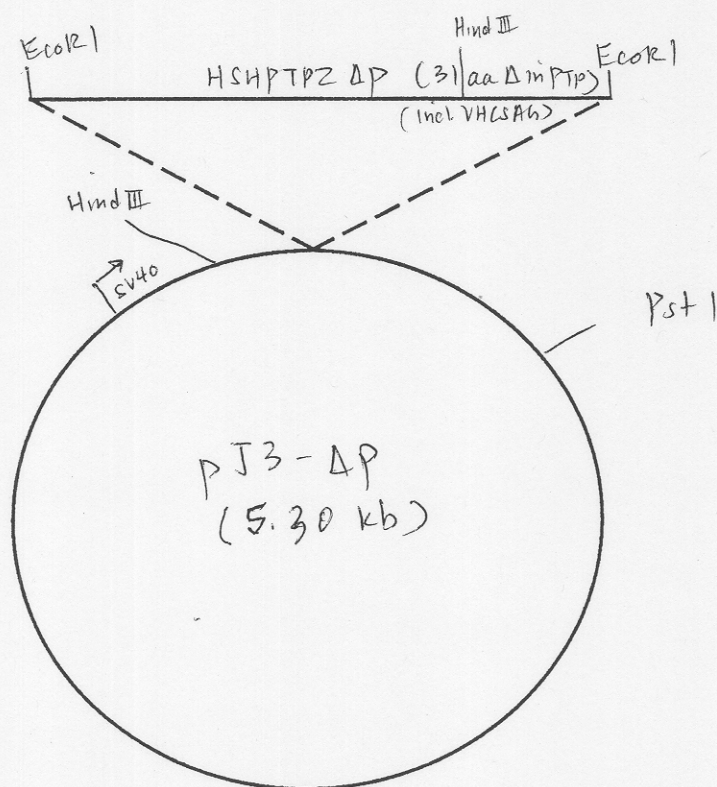 Hind III
EcoR1
HSHPTPZ ΔP (31 aa Δ in PTP)
EcoR1
(incl. VHCSAG)
Hind III
SV40
Pst 1
pJ3-ΔP
(5.30 kb)